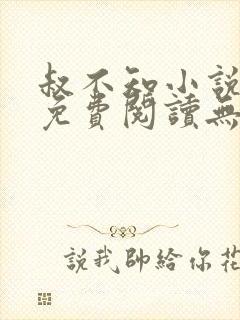 叔不知小說
免費閱讀無
說我帥給你花